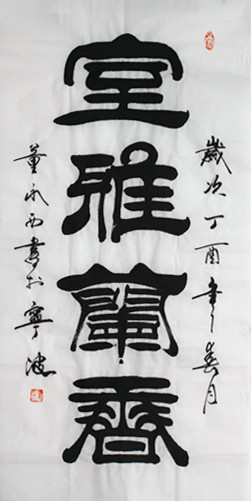 歲次丁酉年春月
室雅蘭香
董永西書於寧波